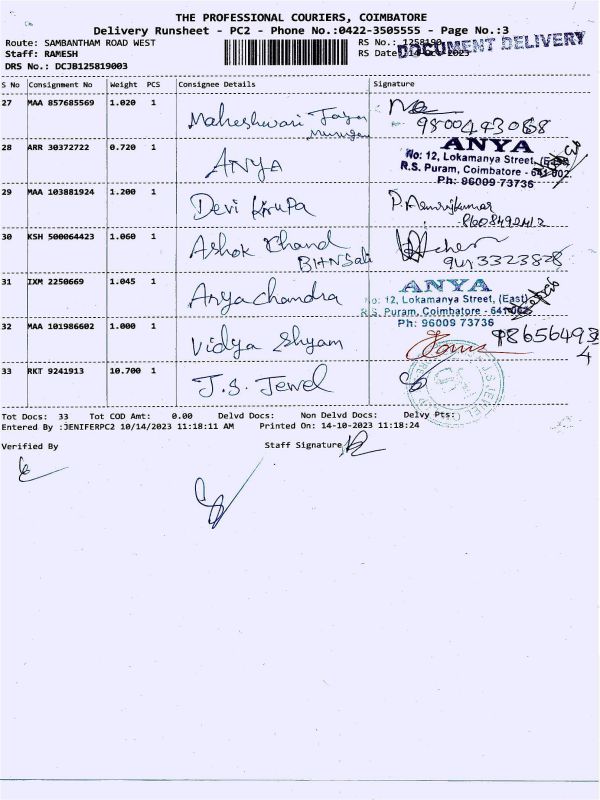 THE PROFESSIONAL COURIERS, COIMBATORE
Delivery Runsheet - PC2 - Phone No.:0422-3505555 - Page No.:3
Route: SAMBANTHAM ROAD WEST RS No.: 1258190
Staff: RAMESH RS Date: 14-10-2023
DOCUMENT DELIVERY
DRS No.: DCJB125819003
S No Consignment No Weight PCS Consignee Details Signature
27 MAA 857685569 1.020 1 Maheshwari
9800443068
28 ARR 30372722 0.720 1 ANYA ANYA
No: 12, Lokamanya Street, (East)
R.S. Puram, Coimbatore - 641 002.
Ph: 96009 73736
29 MAA 103881924 1.200 1 Devi Krupa P.
30 KSH 500064423 1.060 1 Ashok Chand
9443323828
31 IXM 2250669 1.045 1 Anya chandra ANYA
No: 12, Lokamanya Street, (East)
R.S. Puram, Coimbatore - 641 002.
Ph: 96009 73736
32 MAA 101986602 1.000 1 Vidya Shyam 98656493
4
33 RKT 9241913 10.700 1 J.S. Jewel
Tot Docs: 33 Tot COD Amt: 0.00 Delvd Docs: Non Delvd Docs: Delvy Pts:
Entered By :JENIFERPC2 10/14/2023 11:18:11 AM Printed On: 14-10-2023 11:18:24
Verified By Staff Signature